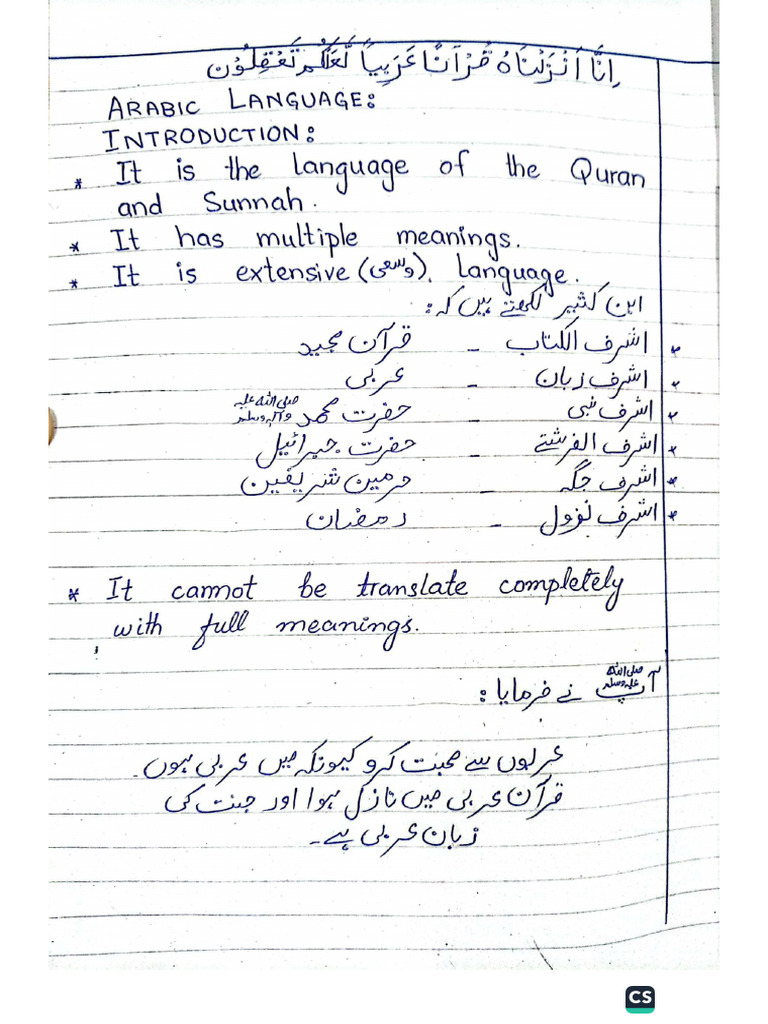 اِنَّا اَنْزَلْنَاهُ قُرْآنًا عَرَبِياً لَّعَلَّكُم تَعْقِلُوْن
ARABIC LANGUAGE:
INTRODUCTION:
* It is the language of the Quran
and Sunnah.
* It has multiple meanings.
* It is extensive (وسعی). language.
ابن کثیر لکھتے ہیں کہ:
* اشرف الکتاب - قرآن مجید
* اشرف زبان - عربی
* اشرف نبی - حضرت محمد صلی اللہ علیہ وآلہ وسلم
* اشرف الفرشتے - حضرت جبرائیل
* اشرف جگہ - حرمین شریفین
* اشرف نزول - رمضان
* It cannot be translate completely
with full meanings.
آپ صلی اللہ علیہ وسلم نے فرمایا:
عربوں سے محبت کرو کیونکہ میں عربی ہوں۔
قرآن عربی میں نازل ہوا اور جنت کی
زبان عربی ہے۔
CS